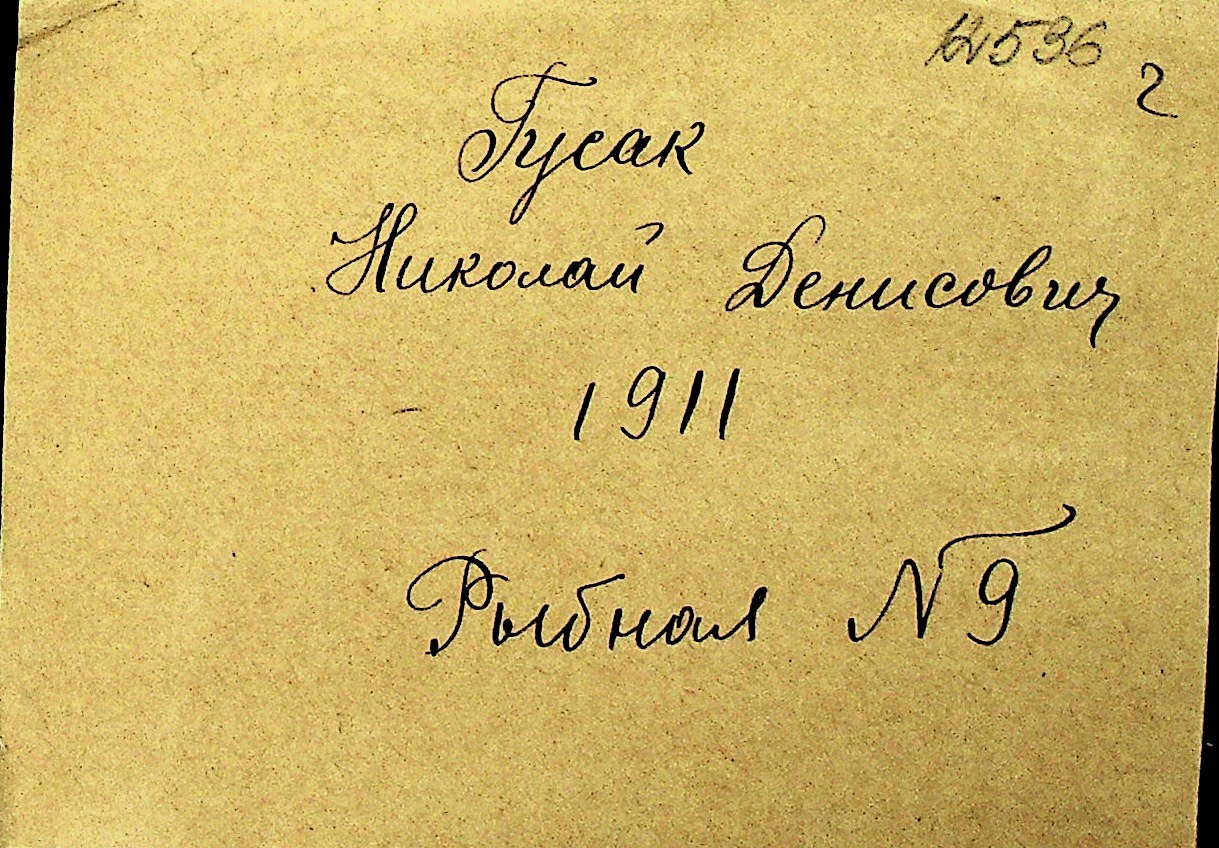 12536
г
Гусак
Николай Денисович
1911
Рыбная N 9